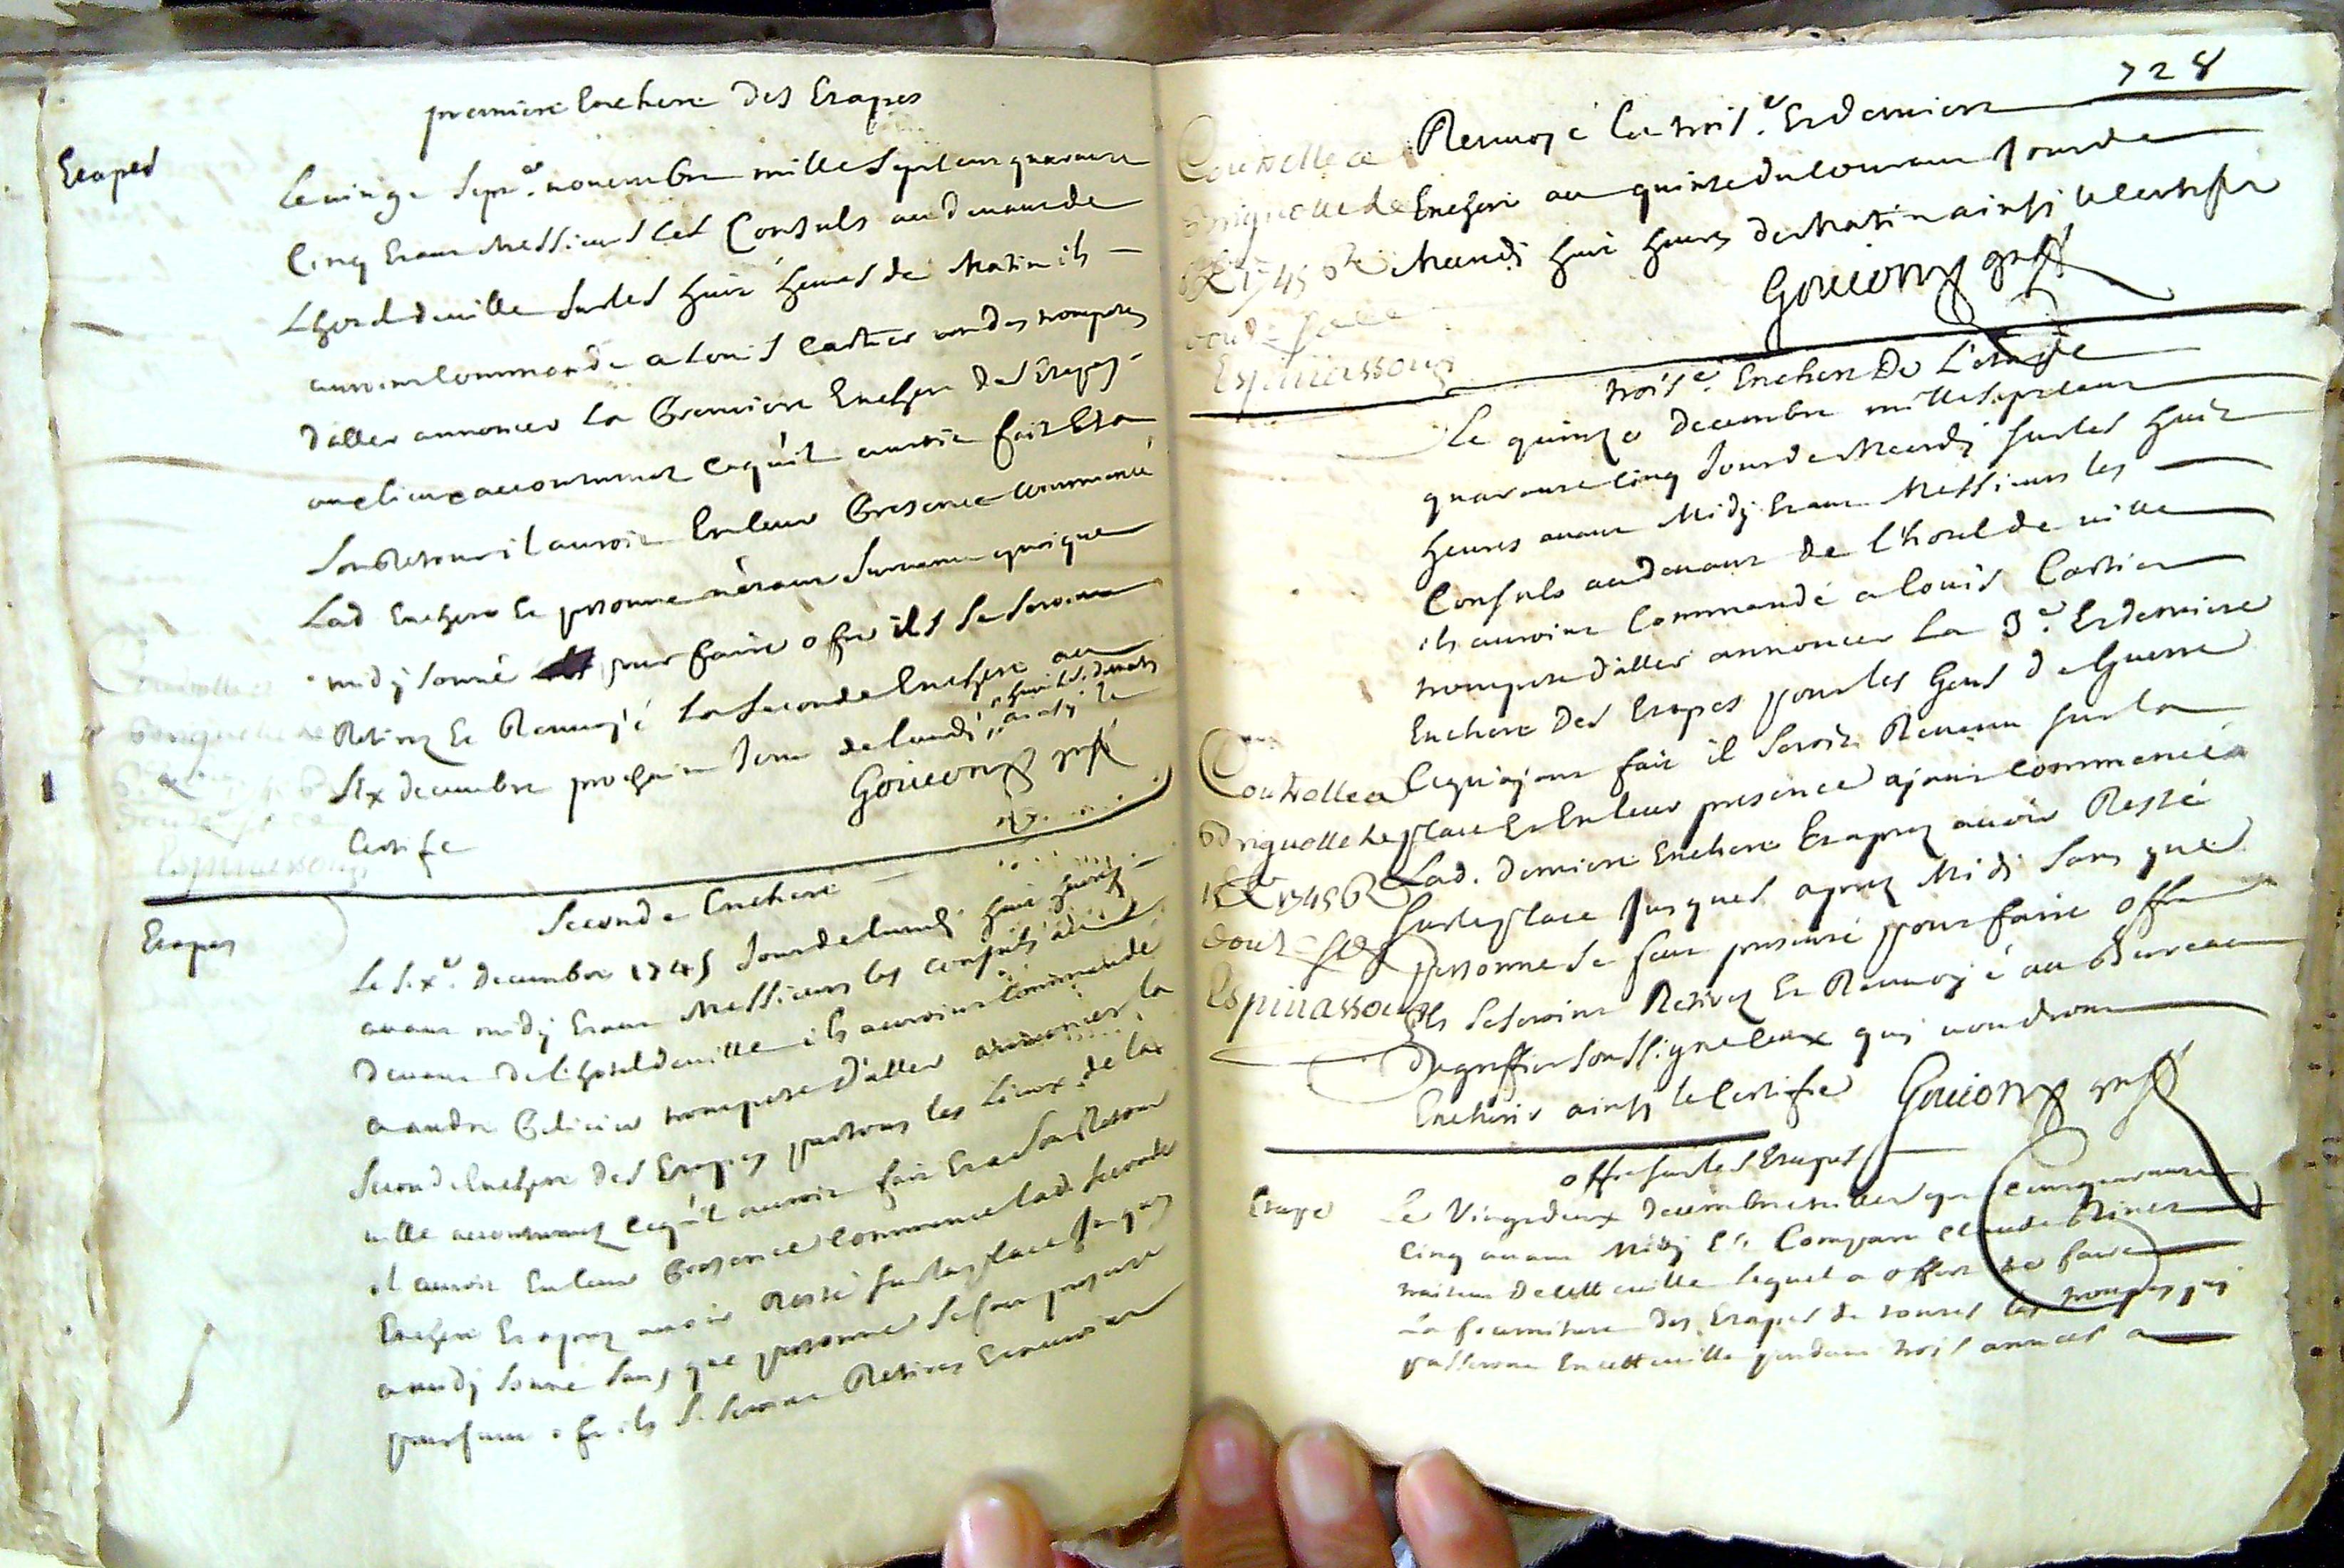 premiere Enchere Des Etapes
Etapes
Le vingt sept.e novembre mille sept cent quarante
Cinq Etant Messieurs les Consuls au devant de
L'hotel de ville sur les huit heures de Matin ils
auroint Commandé a Louis Cartier un des trompetes
D'aller annoncer La Premiere Enchere des Etapes
aux lieux accoutumez Ce qu'il auroit fait Et a
Son Retour il auroit En leur Presence Commencé
Lad. Enchere Et personne n'étant Survenu quoique
midy sonné pour faire offre ils Se Seroint
Retirez Et Renvoyé La Seconde Enchere au
Six decembre prochain Jour de lundi
huit h.
Certifie
Goueony greff
Etapes
Seconde Enchere
Le Six.e decembre 1745 Jour de lundi huit heures
avant midy Etant Messieurs les Consuls au
devant de l'hotel de ville ils auroint Commandé
a andre trompete D'aller annoncer la
Seconde Enchere des Etapes par tous les Lieux de la
ville accoutumez Ce qu'il auroit fait Et a Son Retour
il auroit En leur Presence Commencé lad. Seconde
Enchere Et aprez avoir Resté Sur la place Jusques
a midy Sonné Sans que personne Se fut presenté
pour faire offre ils Se Seroint Retirez Et auroint
728
Renvoyé La trois.e Et derniere
Enchere au quinze du Courant Jour de
Mardi huit heures de Matin ainsi le Certifie
Goueony greff
Controllé a
Briguolle le
1745
douze
Espinassouz
trois.e Enchere De L'etape
Le quinze decembre mille sept cent
quarante Cinq Jour de Mardi Sur les huit
heures avant Midy Etant Messieurs les
Consuls au devant de l'hotel de ville
ils auroint Commandé a Louis Cartier
trompete D'aller annoncer La 3.e Et derniere
Enchere Des Etapes pour les Gens de Guerre
Ce qu'ayant fait il Seroit Revenu Sur la
place Et En leur presence ayant Commencé
Lad. Derniere Enchere Et aprez avoir Resté
Sur la place Jusques aprez Midi Sans que
personne Se fut presenté pour faire offre
ils Se Seroint Retirez Et Renvoyé au Bureau
Du greffier Soussigné Ceux qui voudront
Encherir ainsi le Certifie Goueony greff
Controllé a
Briguolle le
1745
douze
Espinassouz
offre Sur les Etapes
Etape
Le Vingt deux decembre mille sept Cent quarante
Cinq avant Midy Est Comparu Claude
de cette ville lequel a offert de faire
La fourniture Des Etapes de toutes les troupes qui
passeront En cette ville pendant trois années a